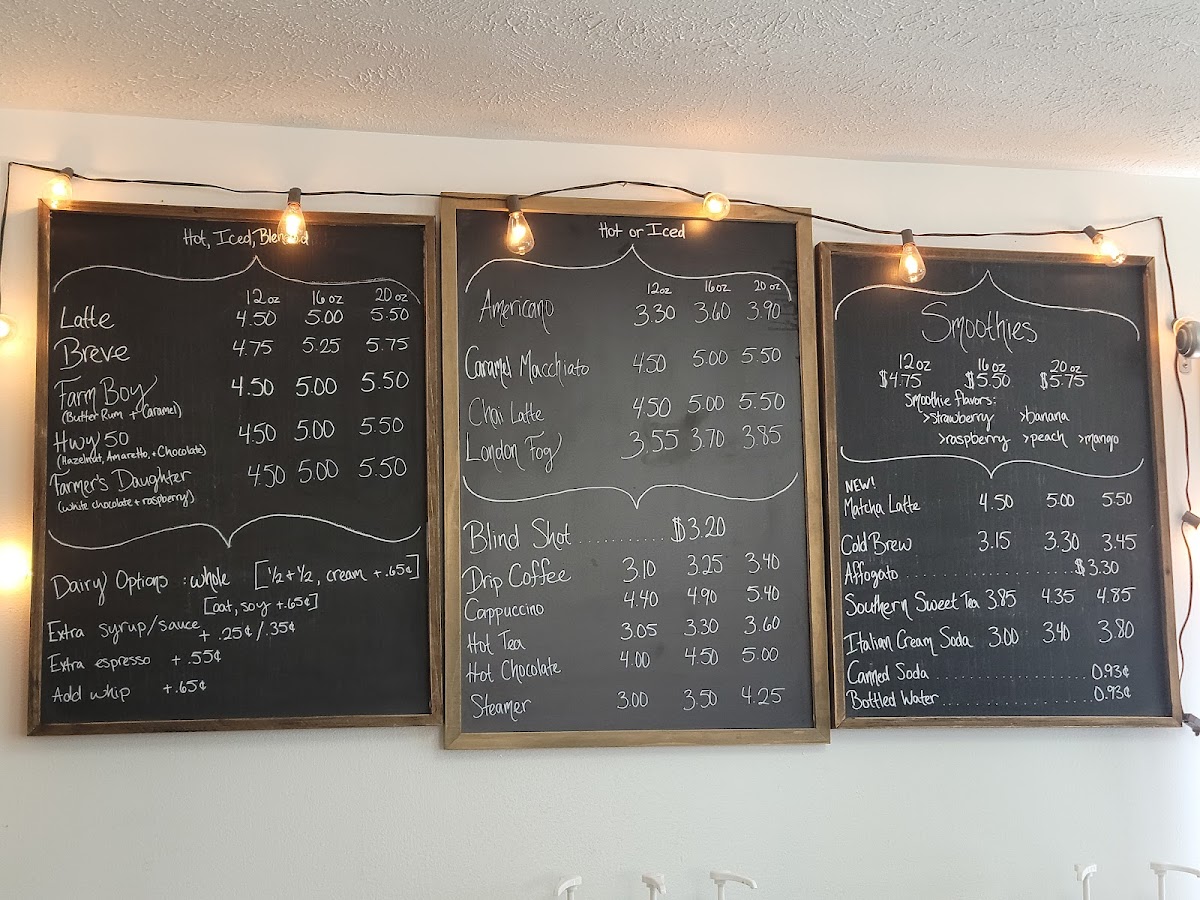 Hot, Iced, Blended
12 oz 16 oz 20 oz
Latte 4.50 5.00 5.50
Breve 4.75 5.25 5.75
Farm Boy 4.50 5.00 5.50
(Butter Rum + Caramel)
Hwy 50 4.50 5.00 5.50
(Hazelnut, Amaretto, + Chocolate)
Farmer's Daughter 4.50 5.00 5.50
(white chocolate + raspberry)
Dairy Options : whole [1/2 + 1/2, cream + .65¢]
[oat, soy + .65¢]
Extra syrup/sauce + .25¢/.35¢
Extra espresso + .55¢
Add whip + .65¢
Hot or Iced
12 oz 16 oz 20 oz
Americano 3.30 3.60 3.90
Caramel Macchiato 4.50 5.00 5.50
Chai Latte 4.50 5.00 5.50
London Fog 3.55 3.70 3.85
Blind Shot .......... $3.20
Drip Coffee 3.10 3.25 3.40
Cappuccino 4.40 4.90 5.40
Hot Tea 3.05 3.30 3.60
Hot Chocolate 4.00 4.50 5.00
Steamer 3.00 3.50 4.25
Smoothies
12 oz 16 oz 20 oz
$4.75 $5.50 $5.75
Smoothie flavors:
>strawberry >banana
>raspberry >peach >mango
NEW!
Matcha Latte 4.50 5.00 5.50
Cold Brew 3.15 3.30 3.45
Affogato .......... $3.30
Southern Sweet Tea 3.85 4.35 4.85
Italian Cream Soda 3.00 3.40 3.80
Canned Soda .......... 0.93¢
Bottled Water .......... 0.93¢